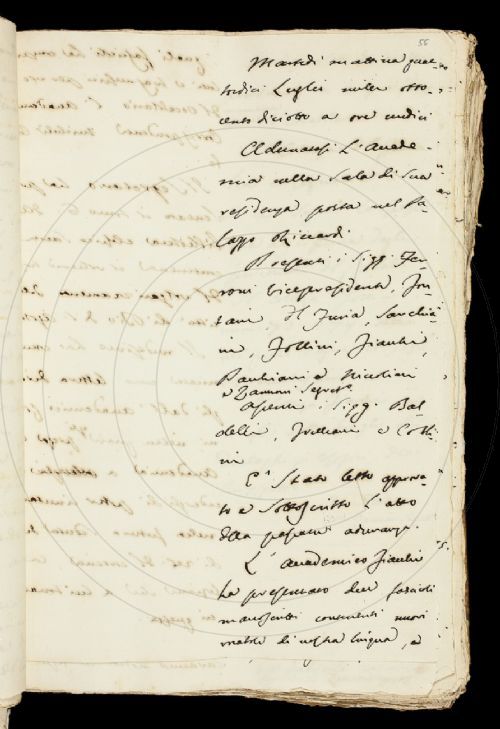 56
Martedì mattina quat-
tordici Luglio mille otto
cento diciotto a ore undici
Adunatasi L'Accade-
mia nella Sala di Sua
residenza posta nel Pa-
lazzo Riccardi
Presenti i Sigg. Fer-
roni Vicepresidente, Fon-
tani, Del Furia, Sarchia-
ni, Follini, Fiacchi,
e Niccolini
e Zannoni Segret.o
assenti i Sigg. Bal-
delli, e Colli-
ni
E' Stato letto approva-
to e Sottoscritto L'atto
della passata adunanza.
L'Accademico Fiacchi
ha presentato due fascicoli
manoscritti contenenti
di nostra lingua, e